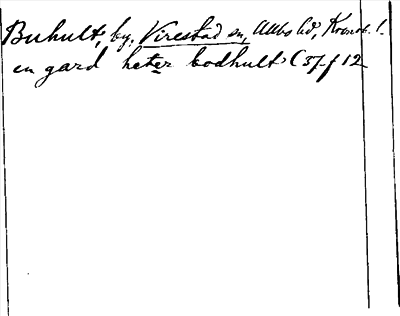 Buhult, by. Virestad sn, Allbo hd, Kronob. l.
en gard heter bodhult (37 f 12